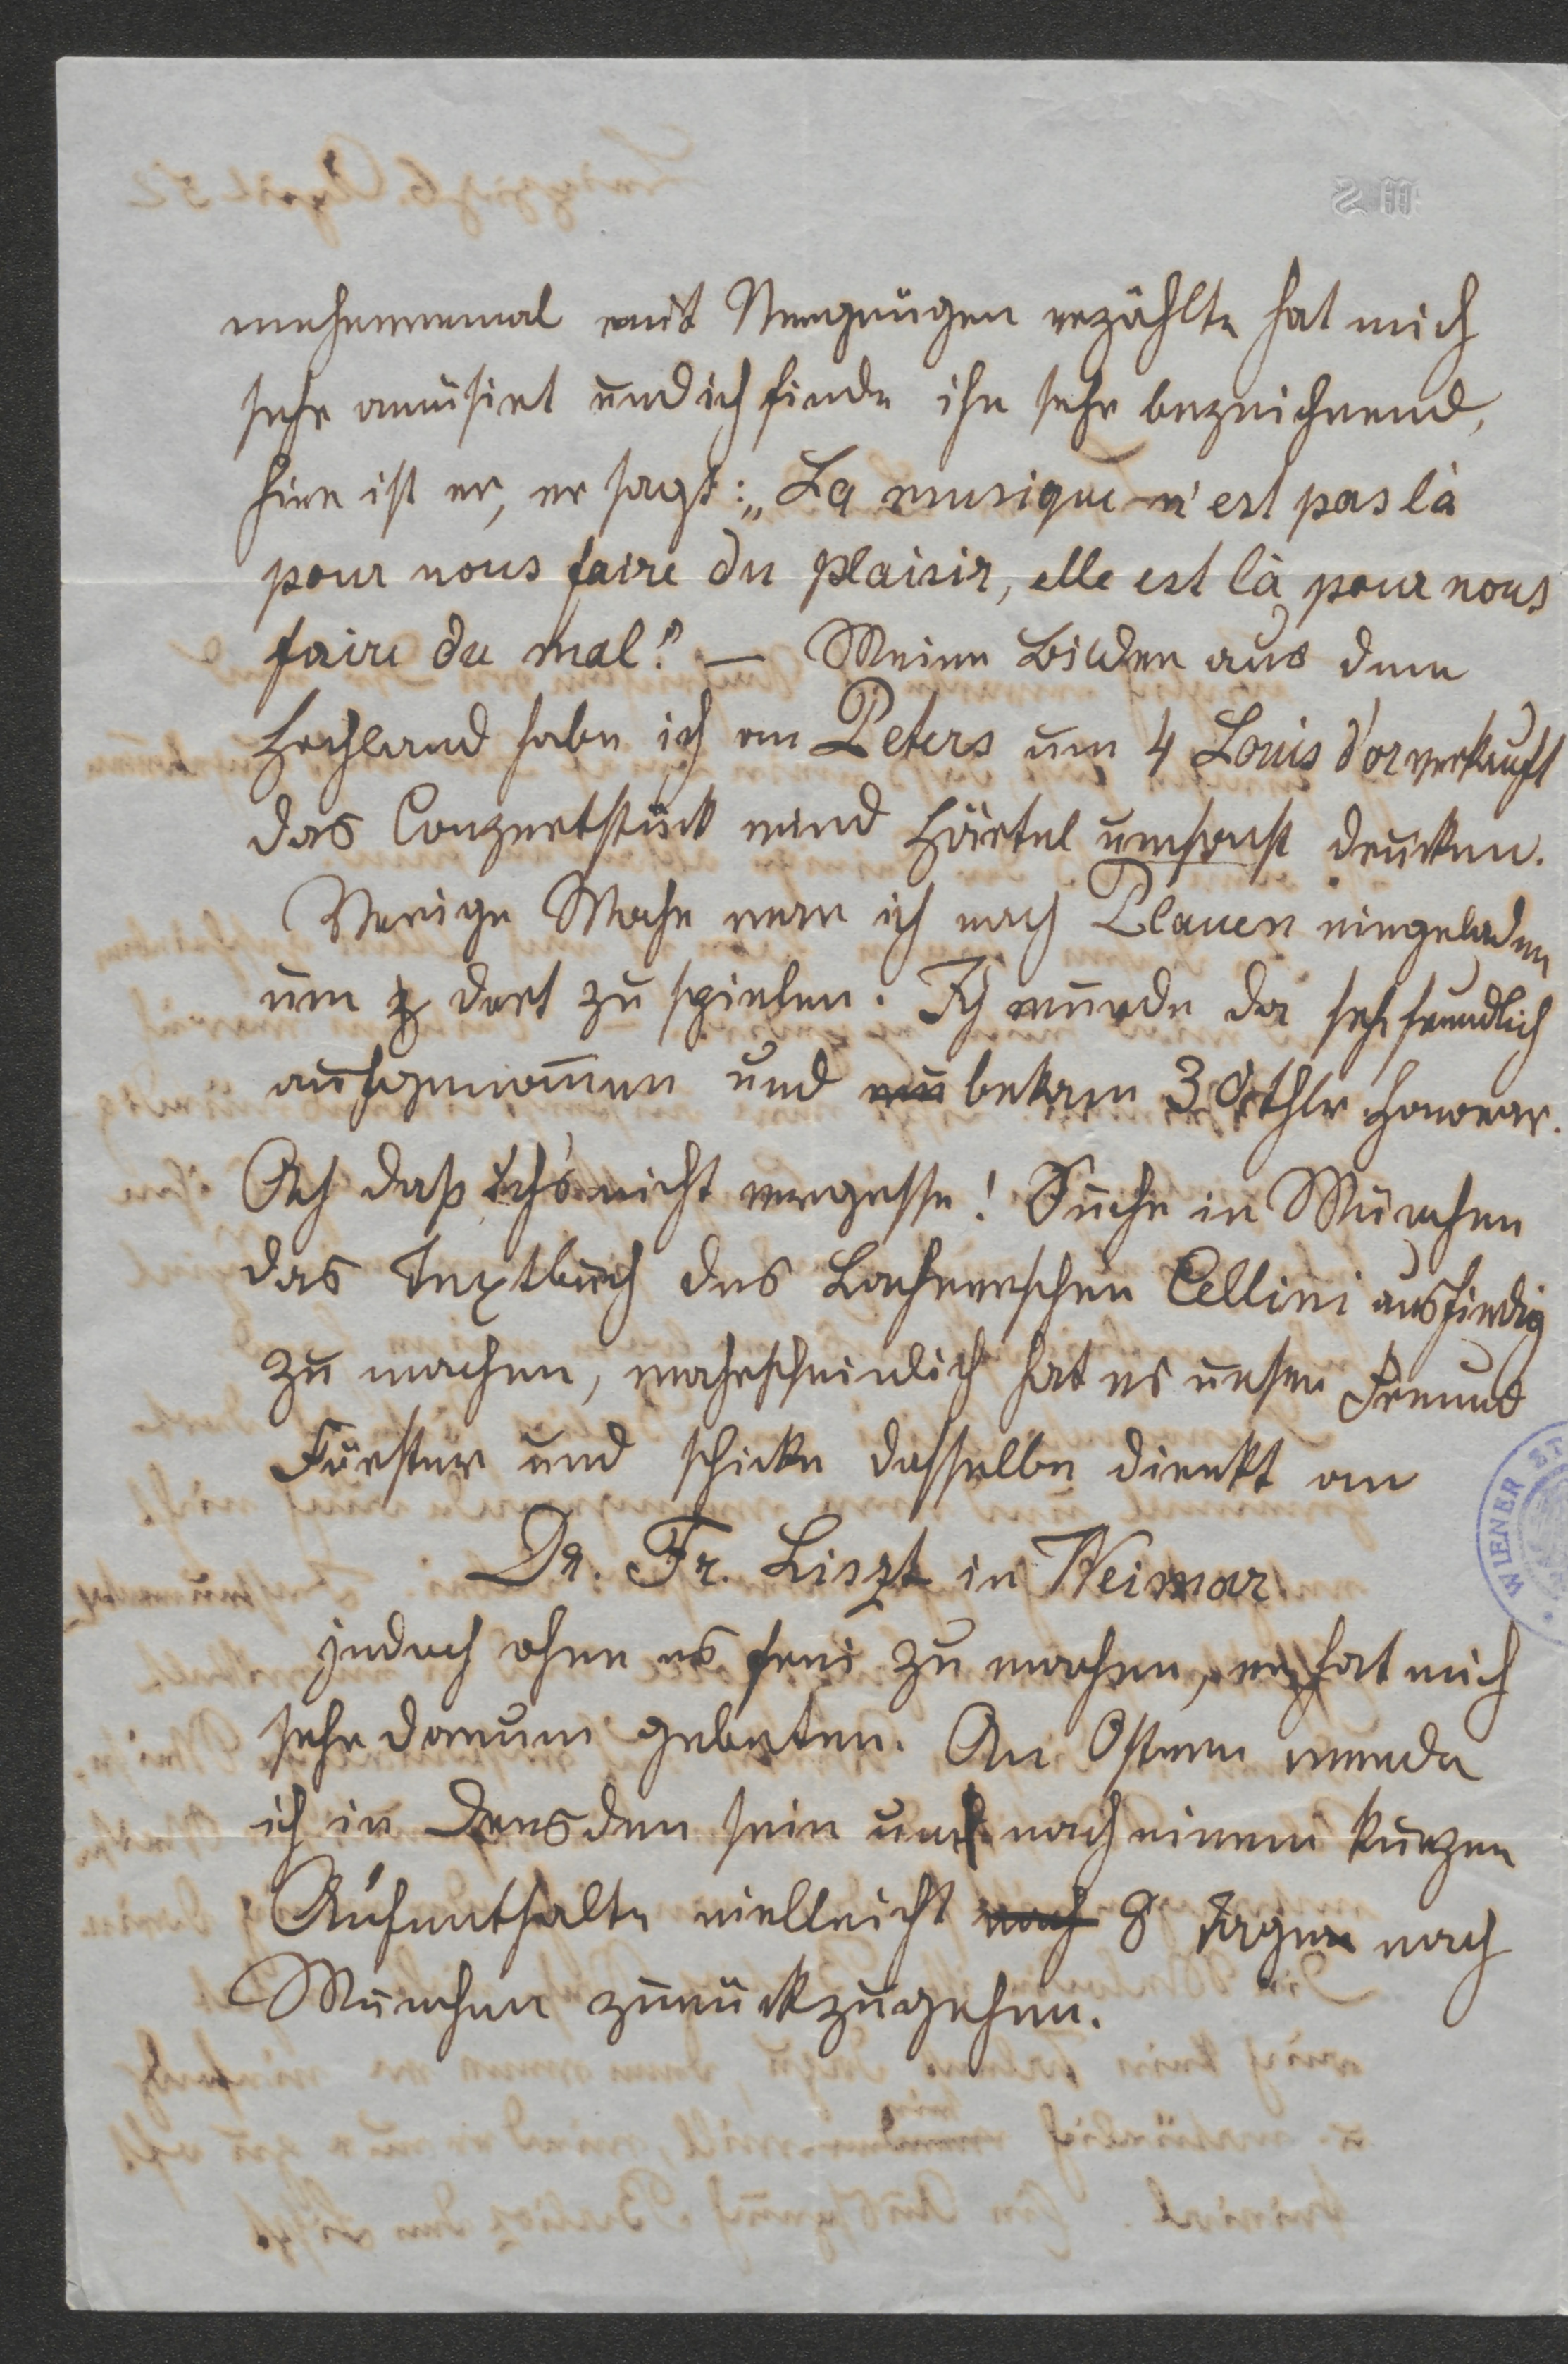 mehreremal mit Vergnügen erzählte hat mich
sehr amüsirt und ich finde ihn sehr bezeichnend,
hier ist er, er sagt: „La musique n'est pas là
pour nous faire du plaisir, elle est là pour nous
faire du mal!" — Meine Bilder aus dem
Hochland habe ich an Peters um 4 Louis d'or verkauft
das Conzertstück wird Härtel umsonst drucken.
Vorige Woche war ich nach Plauen eingeladen
um dort zu spielen. Ich wurde da sehr freundlich
aufgenommen und bekam 30 rthlr Honorar.
Ach daß ich's nicht vergesse! Suche in München
das Textbuch des Lachnerschen Cellini ausfindig
zu machen, wahrscheinlich hat es unser Freund
Förster und schicke dasselbe direkt an
Dr. Fr. Liszt in Weimar
jedoch ohne es frei zu machen, er hat mich
sehr darum gebeten. An Ostern werde
ich in Dresden sein und nach einem kurzen
Aufenthalte vielleicht nach 8 Tagen nach
München zurückzugehen.
WIENER ST